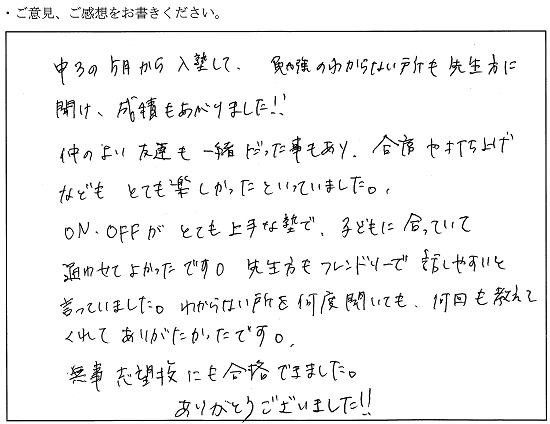 ・ご意見、ご感想をお書きください。
中3の5月から入塾して、勉強のわからない所も先生方に
聞け、成績もあがりました!!
仲のよい友達も一緒だった事もあり、合宿や打ち上げ
なども とても楽しかったといっていました。
ON・OFFが とても上手な塾で、子どもに合っていて
通わせてよかったです。先生方もフレンドリーで話しやすいと
言っていました。わからない所を何度聞いても、何回も教えて
くれてありがたかったです。
無事 志望校にも合格できました。
ありがとうございました!!